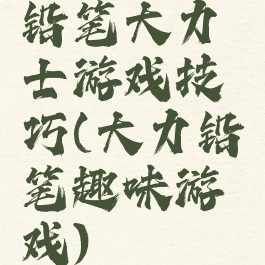 铅笔大力
士游戏技
巧(大力铅
笔趣味游
戏)